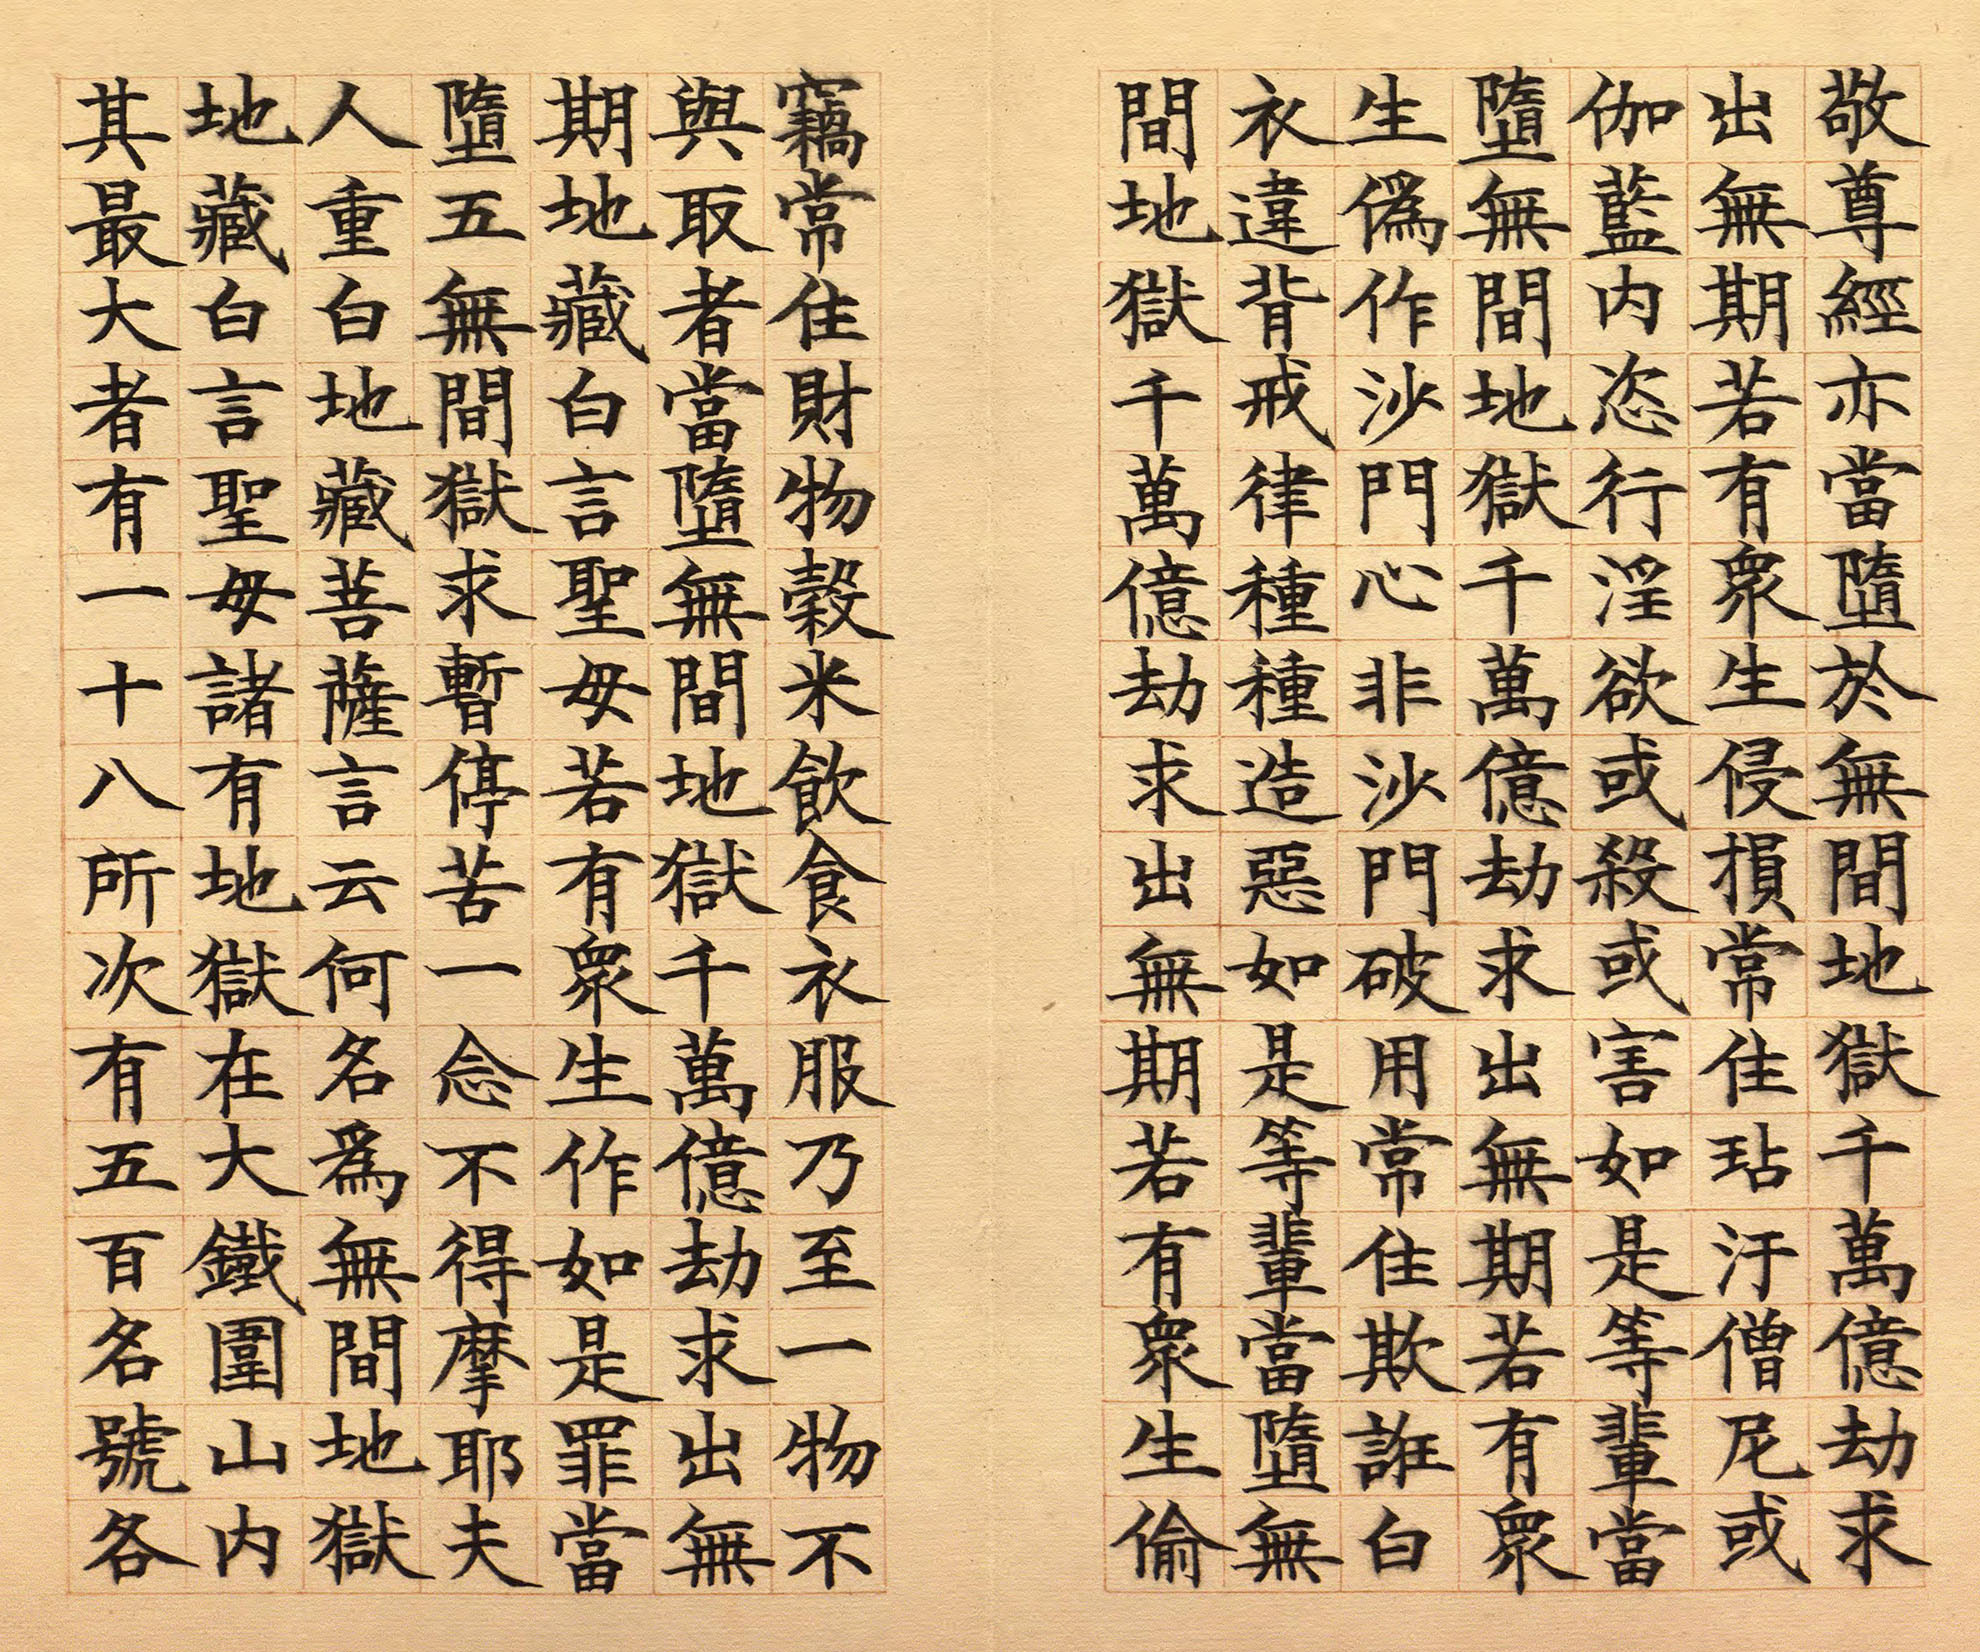 敬尊經亦當墮於無間地獄千萬億劫求
出無期若有眾生侵損常住玷汙僧尼或
伽藍內恣行淫欲或殺或害如是等輩當
墮無間地獄千萬億劫求出無期若有眾
生偽作沙門心非沙門破用常住欺誑白
衣違背戒律種種造惡如是等輩當墮無
間地獄千萬億劫求出無期若有眾生偷
竊常住財物穀米飲食衣服乃至一物不
與取者當墮無間地獄千萬億劫求出無
期地藏白言聖母若有眾生作如是罪當
墮五無間獄求暫停苦一念不得摩耶夫
人重白地藏菩薩言云何名為無間地獄
地藏白言聖母諸有地獄在大鐵圍山內
其最大者有一十八所次有五百名號各